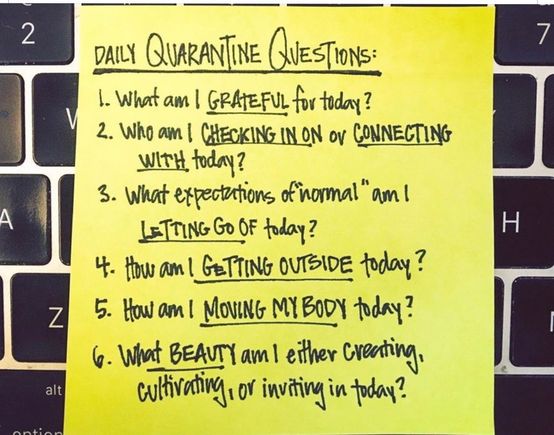 DAILY QUARANTINE QUESTIONS:
1. What am I GRATEFUL for today?
2. Who am I CHECKING IN ON or CONNECTING
WITH today?
3. What expectations of "normal" am I
LETTING GO OF today?
4. How am I GETTING OUTSIDE today?
5. How am I MOVING MY BODY today?
6. What BEAUTY am I either creating,
cultivating, or inviting in today?
2
7
A
H
Z
alt
option